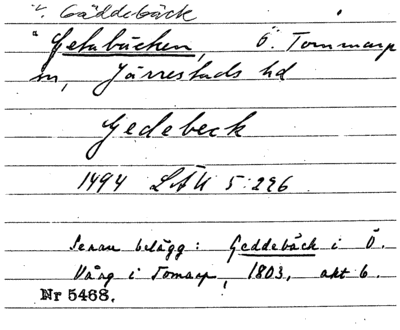 v. Gäddebäck
"Getabäcken, Ö. Tommarp
sn, Järrestads hd
Gedebeck
1494 LÄU 5:296
Senare belägg: Geddebäck i Ö.
Vång i Tomarp, 1803, akt 6.
Nr 5468.